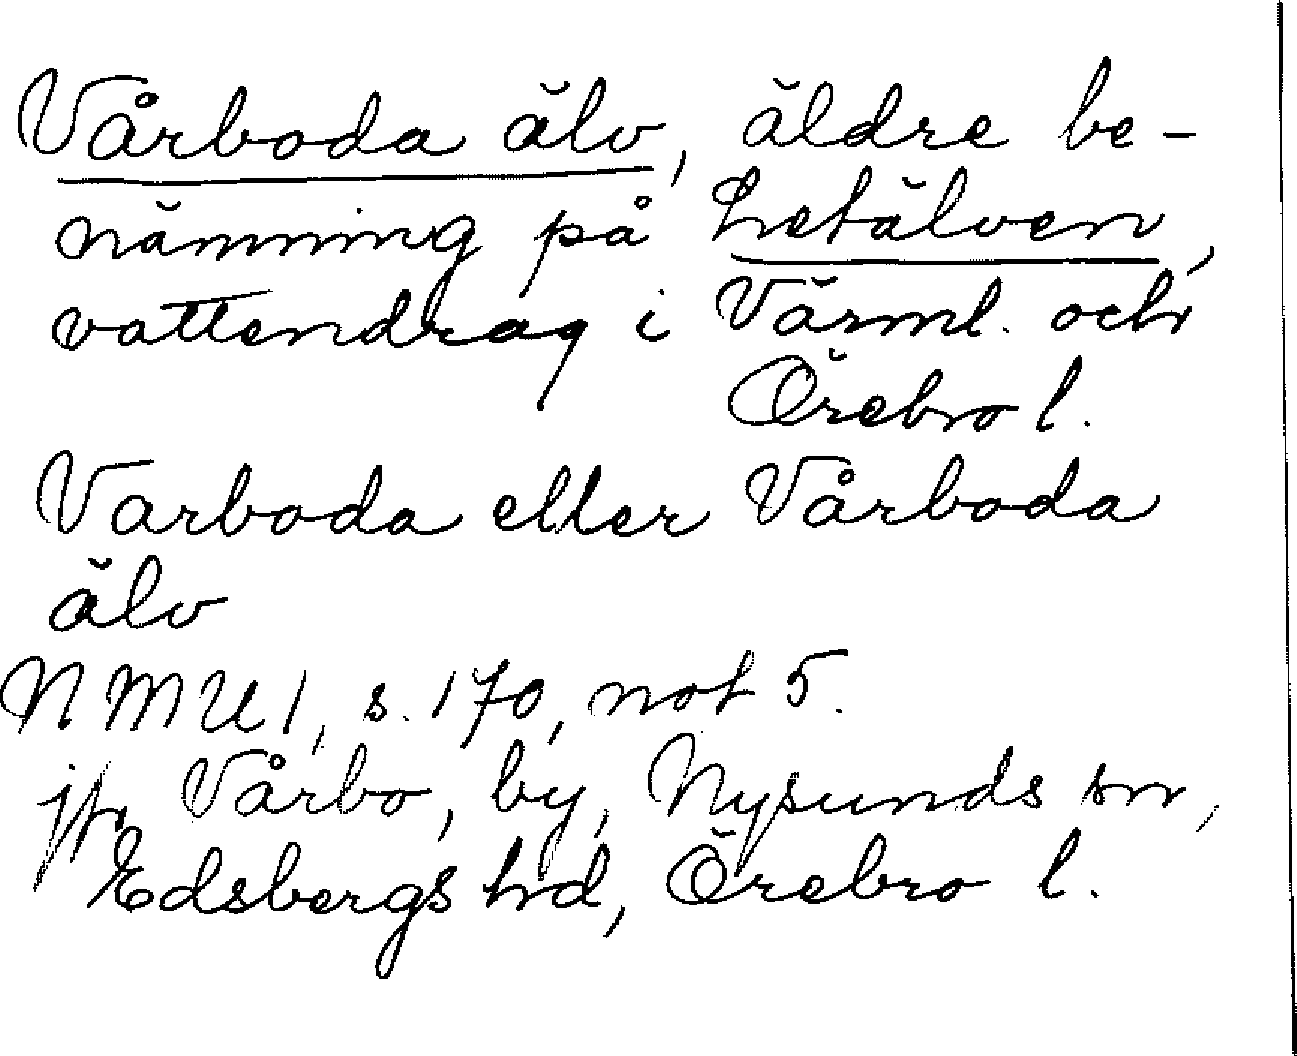 Vårboda älv, äldre be-
nämning på Letälven,
vattendrag i Värml. och
Örebro l.
Varboda eller Vårboda
älv
NMU 1, s. 170, not 5.
jfr Vårbo, by, Nysunds sn,
Edsbergs hd, Örebro l.